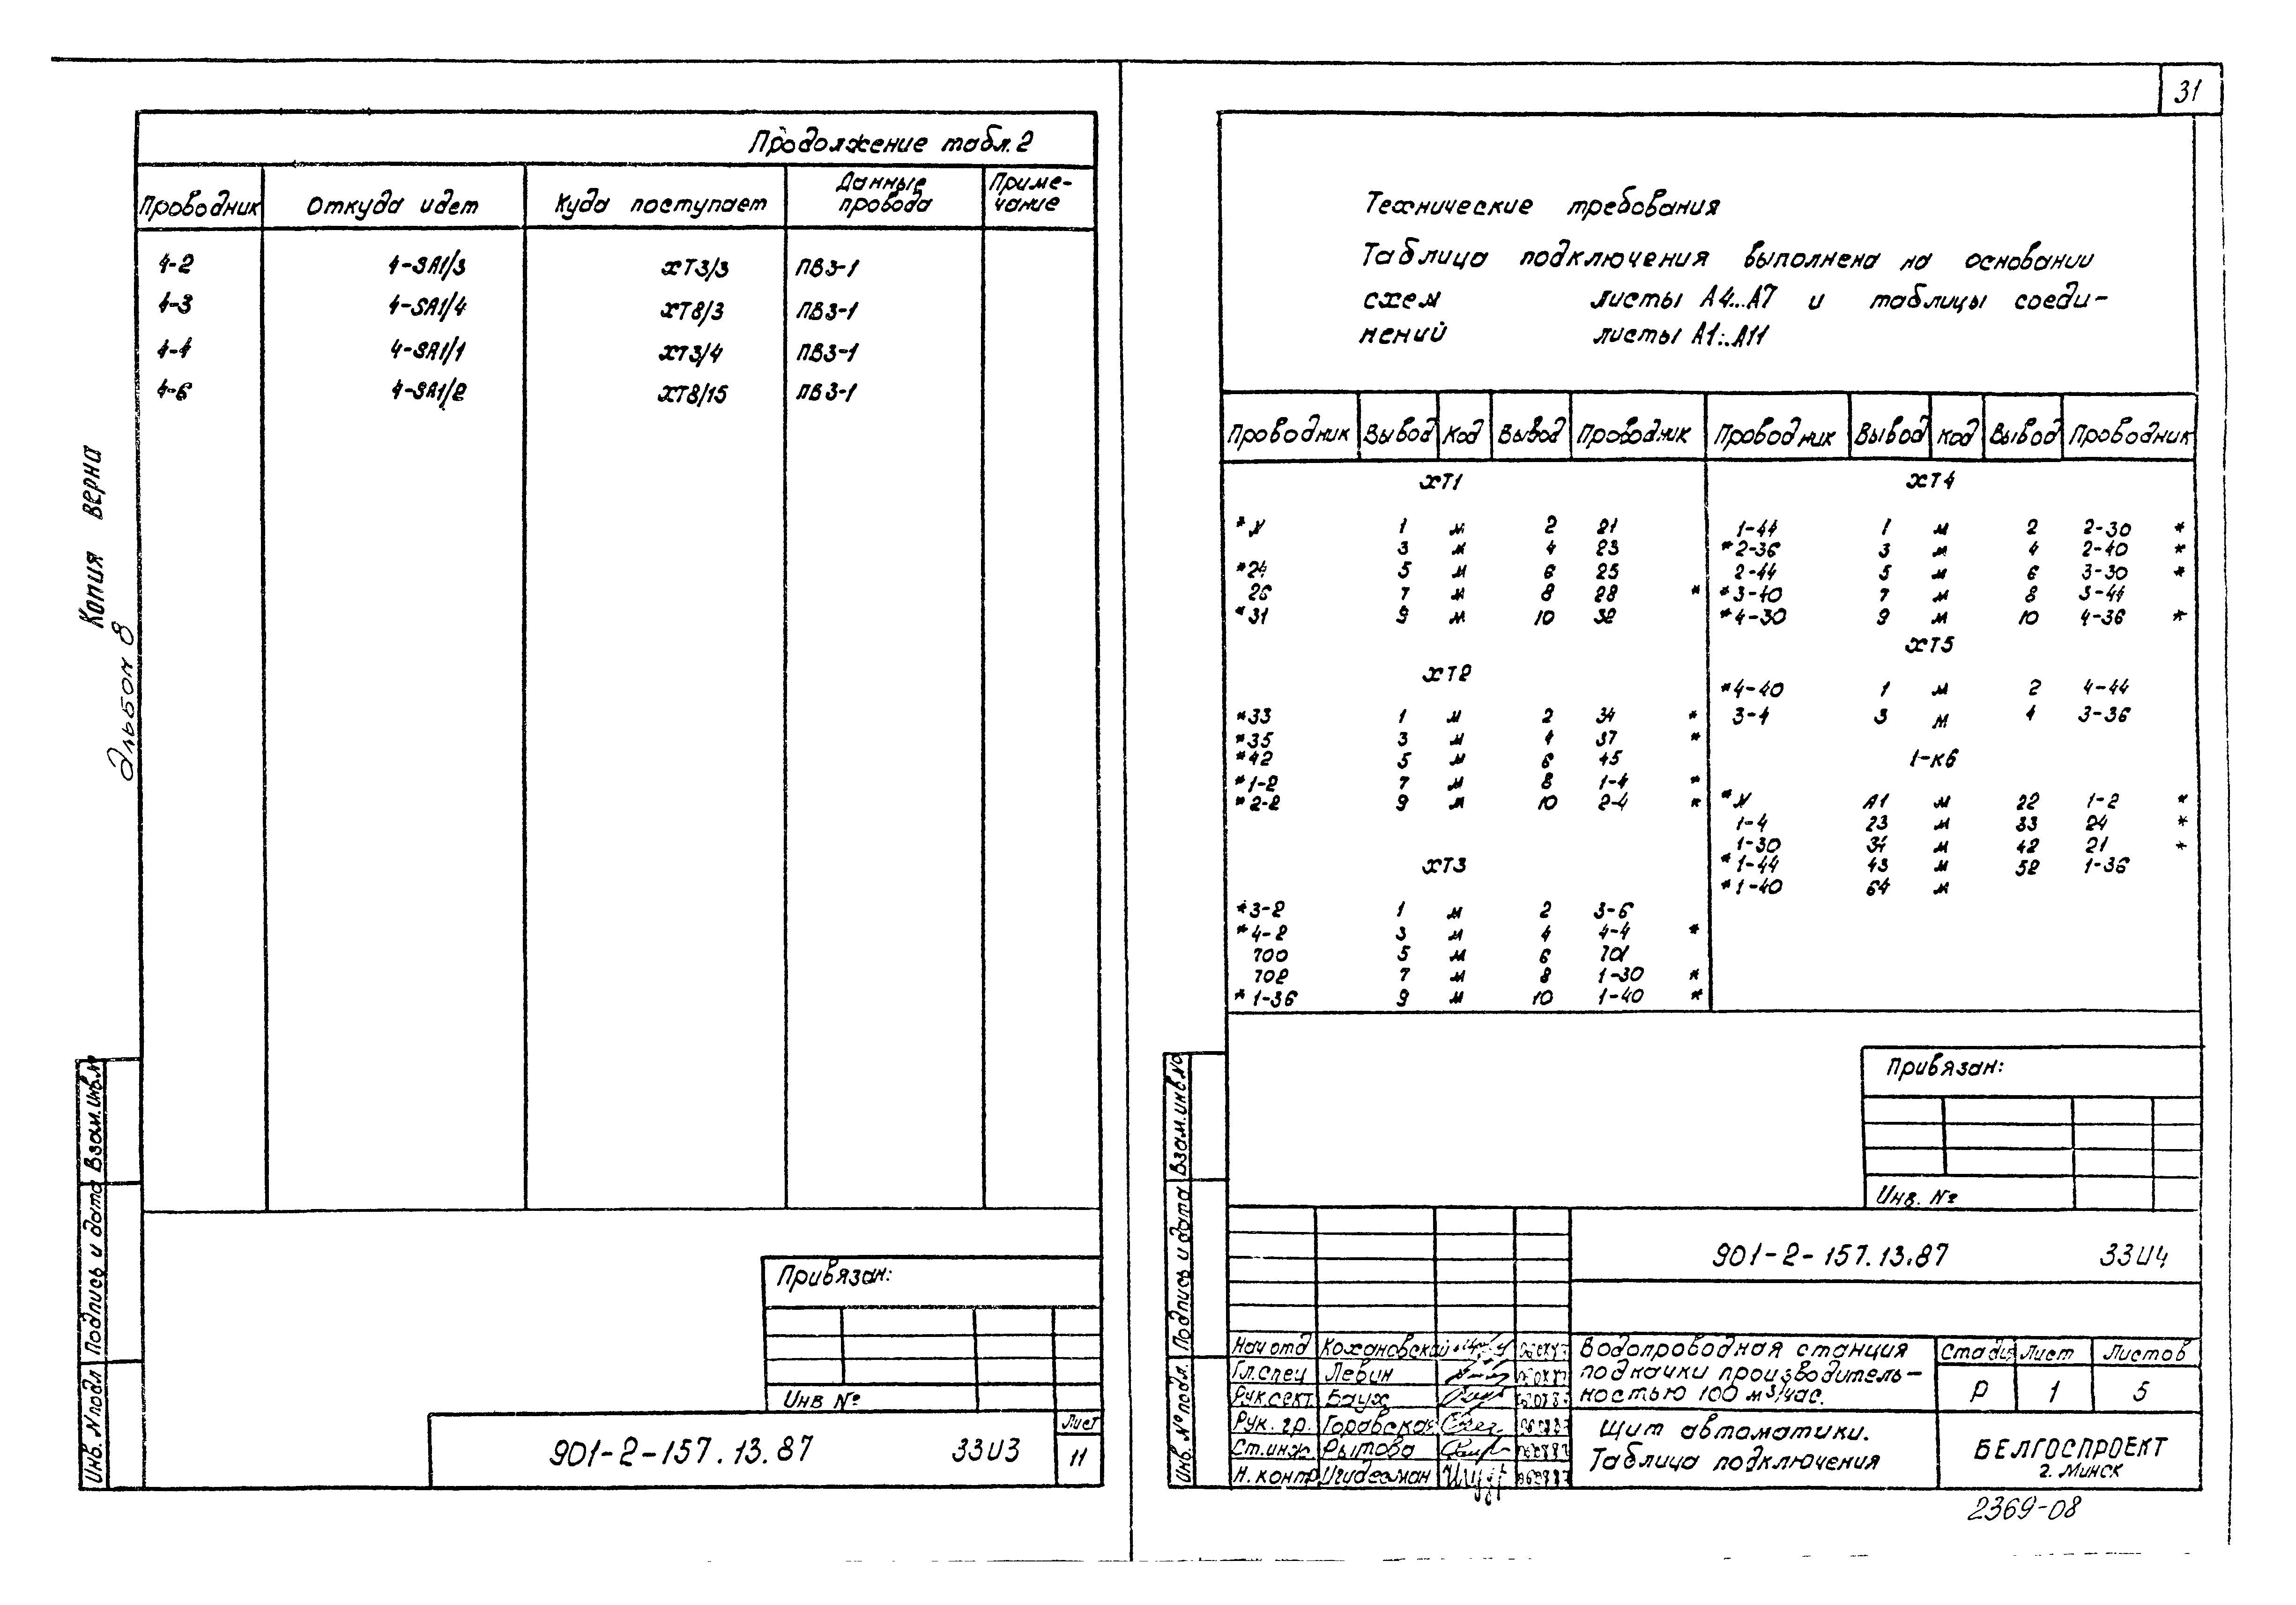 31
Продолжение табл. 2
Проводник Откуда идет Куда поступает Данные провода Приме-чание
4-2 4-SA1/3 XT3/3 ПВ3-1
4-3 4-SA1/4 XT8/3 ПВ3-1
4-4 4-SA1/1 XT3/4 ПВ3-1
4-6 4-SA1/2 XT8/15 ПВ3-1
Копия верна
Альбом 8
Взам. инв. №
Подпись и дата
Инв. № подл
Привязан:
Инв №
901-2-157.13.87 ЗЗИ3
Лист
11
Технические требования
Таблица подключения выполнена на основании
схем листы А4...А7 и таблицы соеди-
нений листы А1...А11
Проводник Вывод Код Вывод Проводник Проводник Вывод Код Вывод Проводник
XT1
* N 1 м 2 21
3 м 4 23
* 24 5 м 6 25
26 7 м 8 28 *
* 31 9 м 10 32
XT2
* 33 1 м 2 34 *
* 35 3 м 4 37 *
* 42 5 м 6 45
* 1-2 7 м 8 1-4 *
* 2-2 9 м 10 2-4 *
XT3
* 3-2 1 м 2 3-6
* 4-2 3 м 4 4-4 *
700 5 м 6 701
702 7 м 8 1-30 *
* 1-36 9 м 10 1-40 *
XT4
1-44 1 м 2 2-30 *
* 2-36 3 м 4 2-40 *
2-44 5 м 6 3-30 *
* 3-40 7 м 8 3-44
* 4-30 9 м 10 4-36 *
XT5
* 4-40 1 м 2 4-44
3-4 3 м 4 3-36
1-К6
* N А1 м 22 1-2 *
1-4 23 м 33 24 *
1-30 34 м 42 21 *
* 1-44 43 м 52 1-36
* 1-40 64 м
Взам. инв. №
Подпись и дата
Инв. № подл.
Привязан:
Инв. №
901-2-157.13.87 ЗЗИ4
Нач отд Кохановский
Гл. спец Левин
Рук. сект. Баух
Рук. гр. Горавская
Ст. инж. Рытова
Н. контр
Водопроводная станция
подкачки производитель-
ностью 100 м³/час.
Стадия Лист Листов
Р 1 5
Щит автоматики.
Таблица подключения
БЕЛГОСПРОЕКТ
г. Минск
2369-08